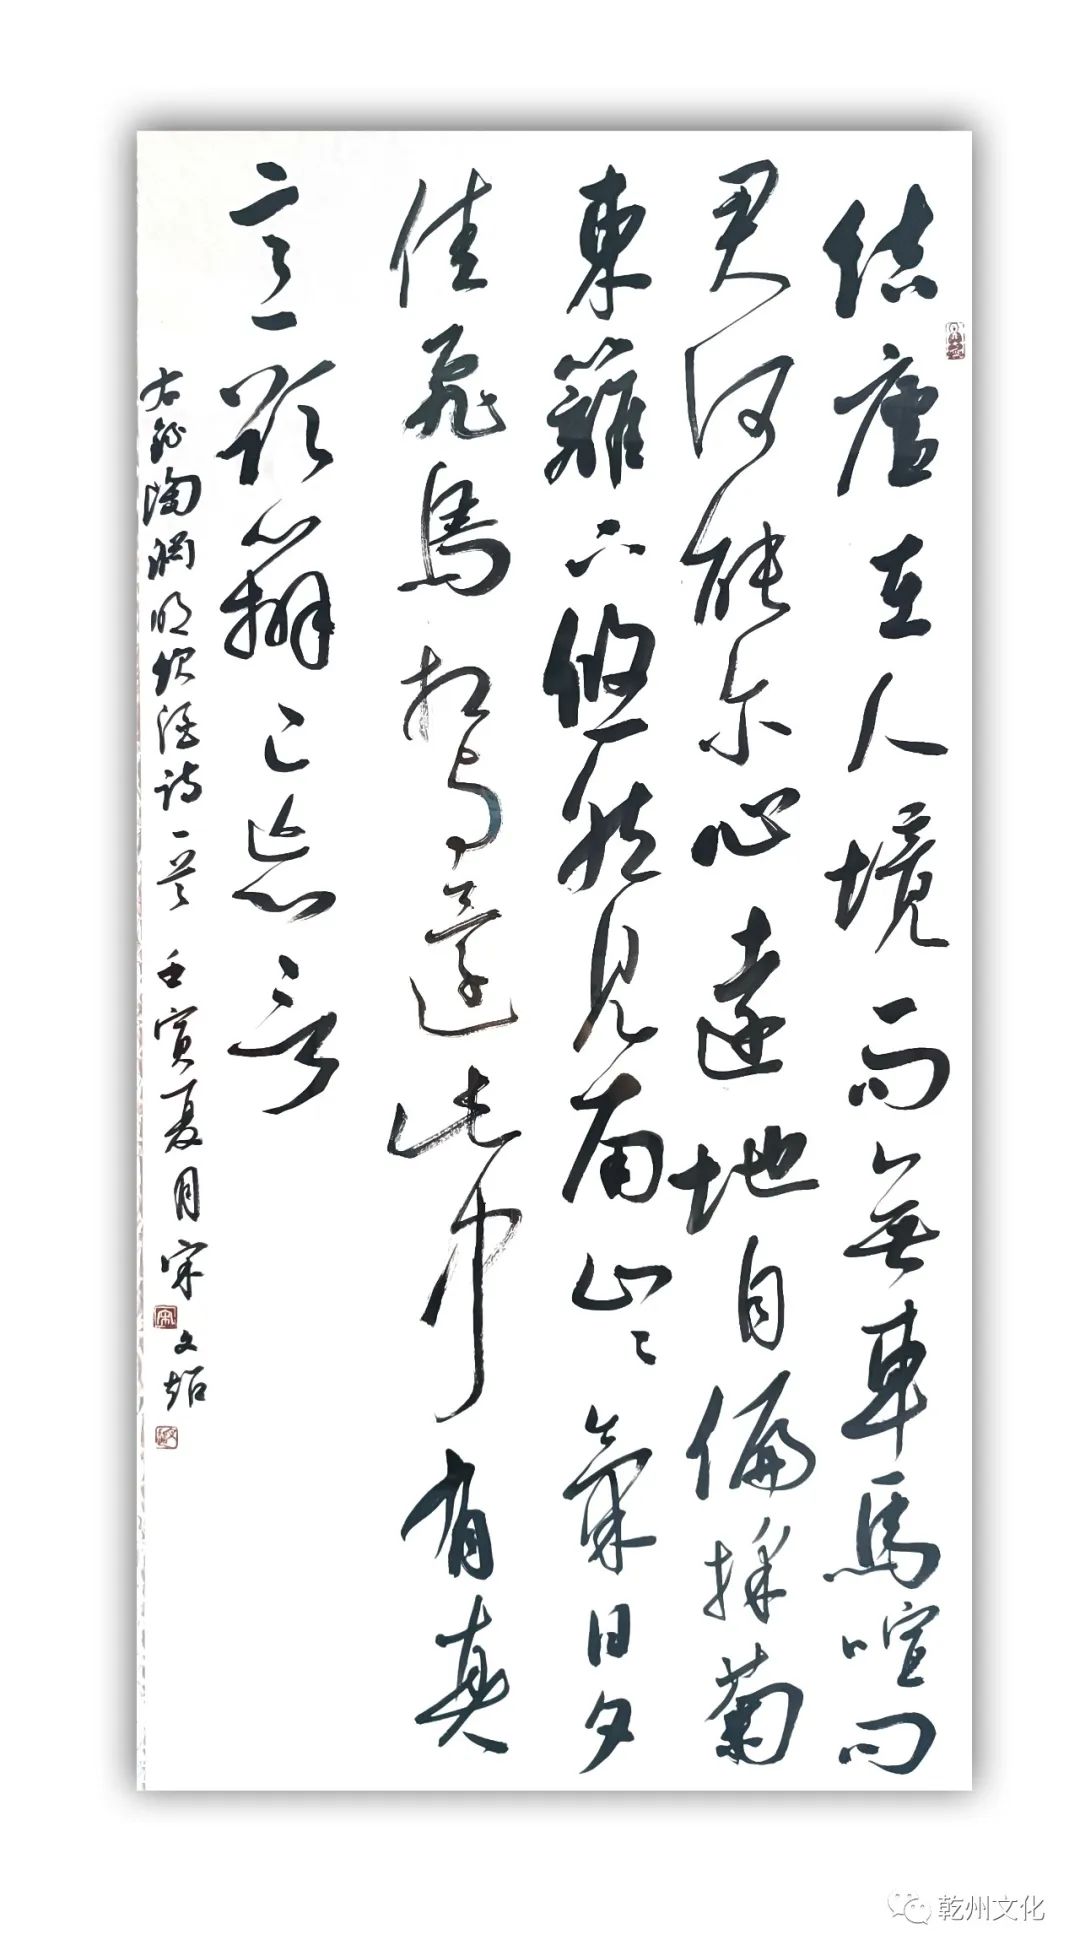 结廬在人境而無車馬喧问
君何能尔心遠地自偏採菊
東籬下悠然見南山山氣日夕
佳飛鳥相与還此中有真
意欲辯已忘言
右録陶渊明饮酒诗一首 壬寅夏月宋文韬
乾州文化